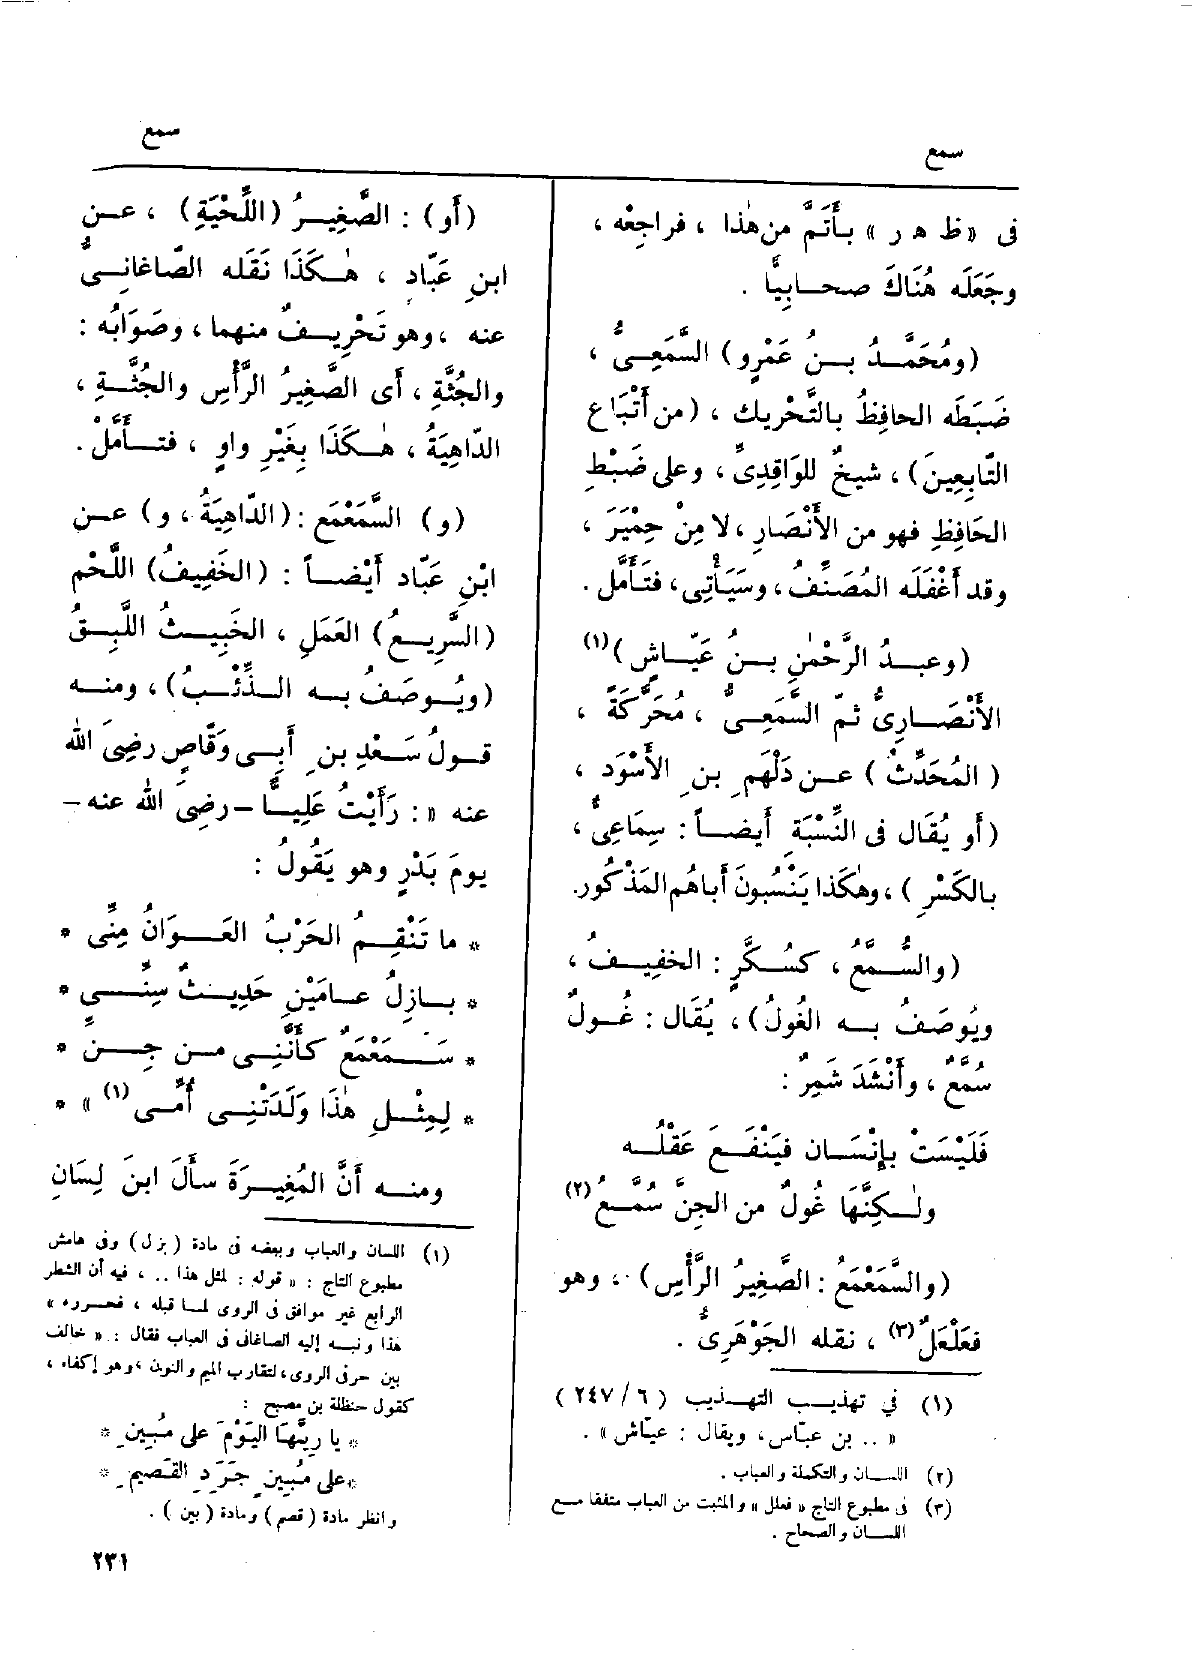 سمع
سمع
فى «ظ ه ر» بأَتَمَّ من هٰذا ، فراجِعْه ،
وجَعَلَه هُنَاكَ صحابِيًّا .
(ومُحَمَّدُ بنُ عَمْرٍو) السَّمَعِىُّ ،
ضَبَطَه الحافِظُ بالتَّحْرِيك ، (من أَتْبَاع
التّابِعِينَ) ، شيخٌ للوَاقِدِىِّ ، وعلى ضَبْطِ
الحَافِظِ فهو من الأَنْصَارِ ، لا مِنْ حِمْيَرَ ،
وقد أَغْفَلَه المُصَنِّفُ ، وسَيَأْتِى ، فتَأَمَّل .
(وعبدُ الرَّحْمٰنِ بنُ عَيّاشٍ )(١)
الأَنْصَارِىُّ ثمّ السَّمَعِىُّ ، مُحَرَّكَةً ،
( المُحَدِّثُ ) عن دَلْهَمِ بنِ الأَسْوَدِ ،
(أَو يُقَال فى النِّسْبَةِ أَيضاً : سِمَاعِىٌّ ،
بالكَسْرِ ) ، وهٰكَذا يَنْسُبُونَ أَباهُم المَذْكُور.
(والسُّمَّعُ ، كسُكَّرٍ : الخفِيفُ ،
ويُوصَفُ به الغُولُ) ، يُقَال : غُولٌ
سُمَّعٌ ، وأَنْشَدَ شَمِرٌ :
فَلَيْسَتْ بإِنْسَان فيَنْفَعَ عَقْلُه
ولٰكِنَّهَا غُولٌ من الجِنِّ سُمَّعُ(٢)
(والسَّمَعْمَعُ : الصَّغِيرُ الرَّأْسِ) ، وهو
فعَلْعَلٌ(٣) ، نقله الجَوْهَرِىُّ .
(١) في تهذيب التهذيب (٢٤٧/٦ )
« .. بن عبّاس، ويقال : عيّاش» .
(٢) اللسان والتكملة والعباب .
(٣) فى مطبوع التاج « فعلل » والمثبت من العباب متفقا مع
اللسان والصحاح .
(أَو) : الصَّغِيرُ (اللِّحْيَةِ) ، عن
ابنِ عَبّادٍ ، هٰكَذَا نَقَله الصّاغانِىُّ
عنه ، وهو تَحْرِيفٌ منهما ، وصَوَابُه :
والجُثَّةِ ، أَى الصَّغِيرُ الرَّأْسِ والجُثَّةِ ،
الدّاهِيَةُ ، هٰكَذَا بِغَيْرِ واوٍ ، فتأَمَّلْ .
(و) السَّمَعْمَع : (الدّاهِيَةُ ، و) عن
ابْنِ عَبّاد أَيْضاً : (الخَفِيفُ) اللَّحْم
(السَّرِيعُ) العَمَلِ ، الخَبِيثُ اللَّبِقُ
(ويُوصَفُ به الذِّئْبُ) ، ومنه
قولُ سَعْدِ بنِ أَبِى وَقّاصٍ رضِىَ اللّٰه
عنه « : رَأَيْتُ عَلِيًّا – رضِىَ اللّٰه عنه –
يومَ بَدْرٍ وهو يَقُولُ :
* ما تَنْقِمُ الحَرْبُ العَوَانُ مِنِّى *
* بازِلُ عامَيْنِ حَدِيثٌ سِنِّى *
* سَمَعْمَعٌ كأَنَّنِى من جِنِّ *
* لِمِثْلِ هٰذَا وَلَدَتْنِى أُمِّى(١) » *
ومنه أَنَّ المُغِيرَةَ سأَلَ ابنَ لِسَانِ
(١) اللسان والعباب وبعضه فى مادة (بزل) وفى هامش
مطبوع التاج : « قوله : لمثل هذا .. ، فيه أن الشطر
الرابع غير موافق فى الروى لما قبله ، فحرره »
هذا ونبه إليه الصاغانى فى العباب فقال : « خالف
بين حرفى الروى ، لتقارب الميم والنون ، وهو إكفاء ،
كقول حنظلة بن مصبح :
* يا رِيَّهَا اليَوْمَ على مُبِينِ *
* على مُبِينٍ جَرَدِ القَصِيمِ *
وانظر مادة (قصم) ومادة (بين) .
٢٣١